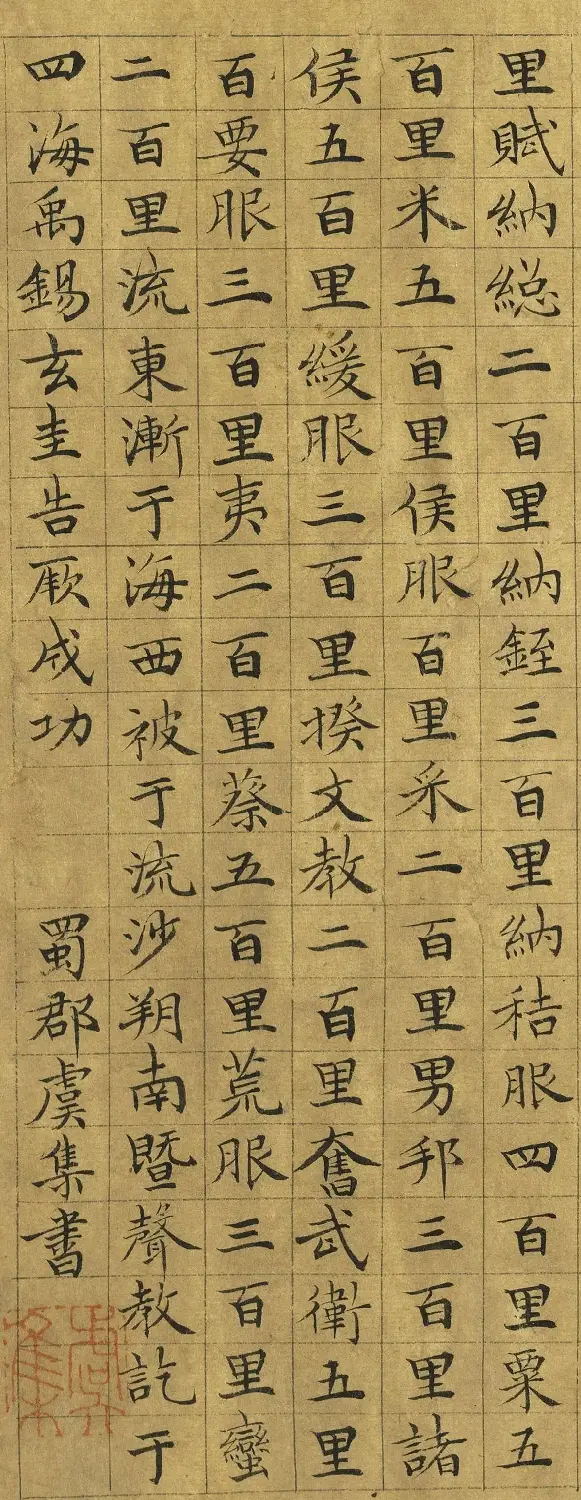 里賦納緫二百里納銍三百里納秸服四百里粟五
百里米五百里侯服百里采二百里男邦三百里諸
侯五百里緩服三百里揆文教二百里奮武衛五里
百要服三百里夷二百里蔡五百里荒服三百里蠻
二百里流東漸于海西被于流沙朔南暨聲教訖于
四海禹錫玄圭告厥成功 蜀郡虞集書